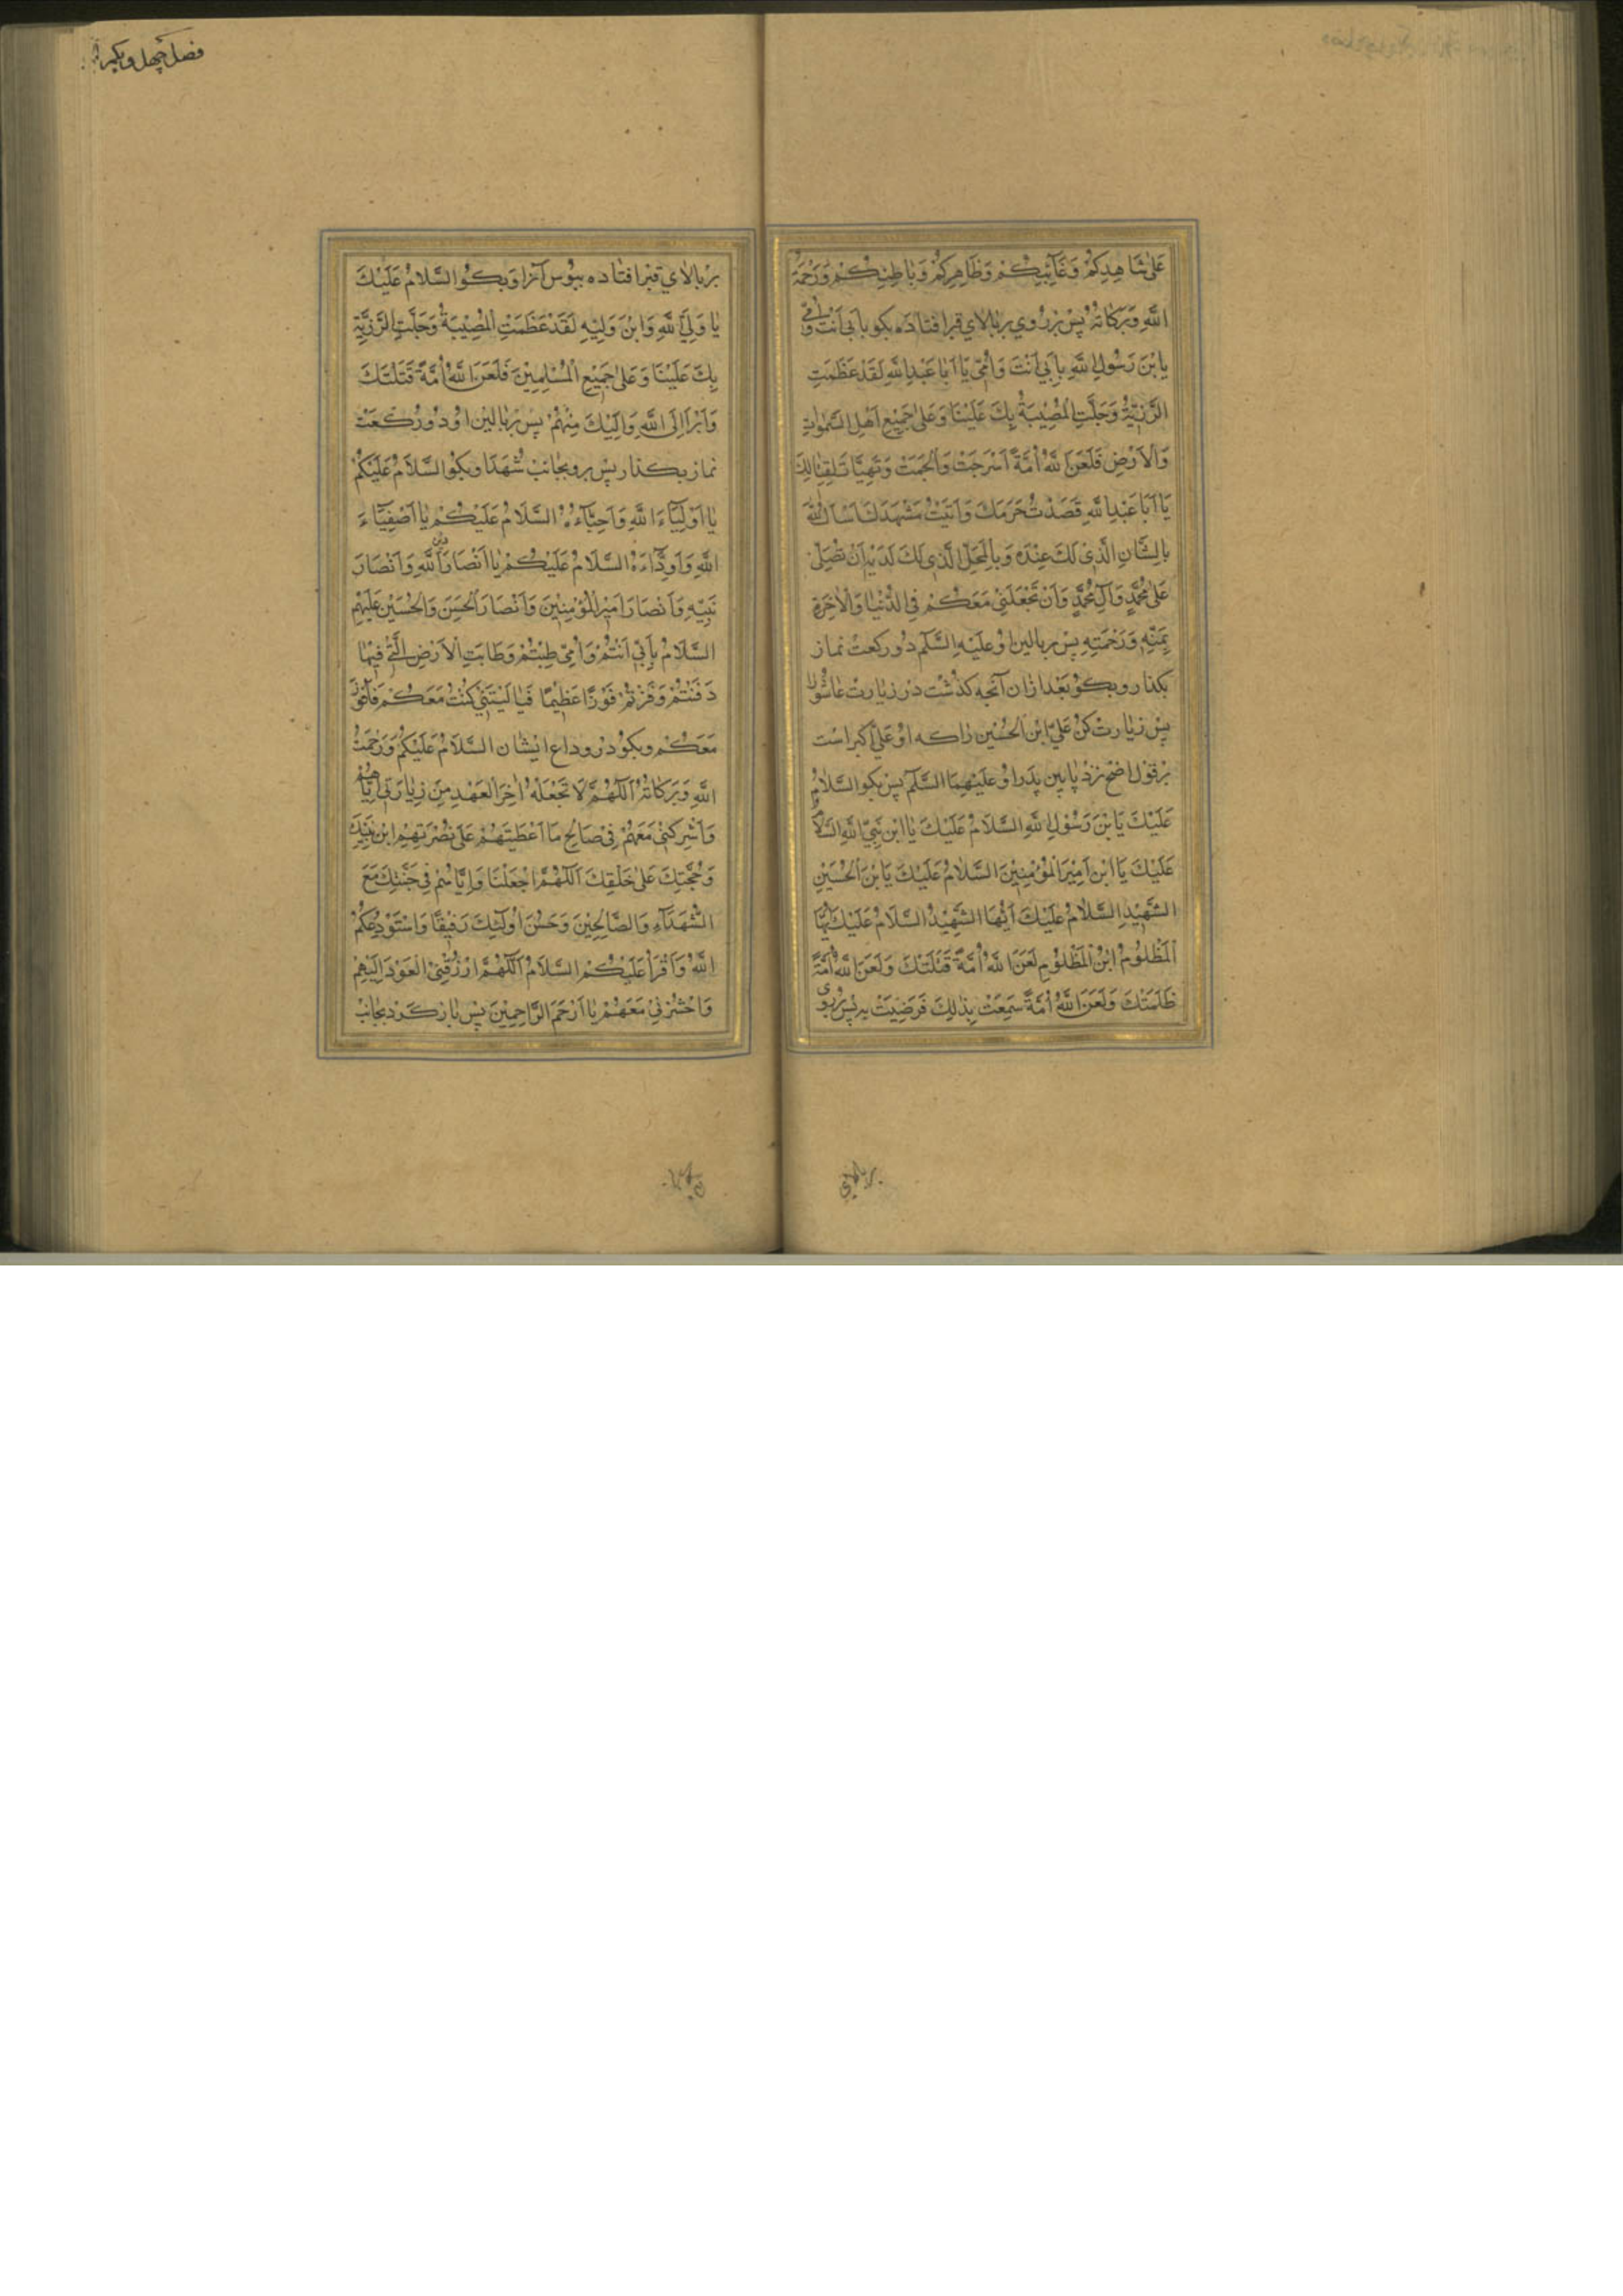 عَلىٰ شَاهِدِكُمْ وَغَآئِبِكُمْ وَظَاهِرِكُمْ وَبَاطِنِكُمْ وَرَحْمَةُ
اللّٰهِ وَبَرَكَاتُهُ پس بزروي بربالاي قبر افتاده بكو بابي انت وامي
يابْنَ رَسُولِ اللّٰهِ بِاَبي اَنْتَ وَاُمّي يَا اَبَا عَبْدِ اللّٰهِ لَقَدْ عَظُمَتِ
الرَّزِيَّةُ وَجَلَّتِ الْمُصِيْبَةُ بِكَ عَلَيْنَا وَعَلىٰ جَمِيْعِ اَهْلِ السَّمٰوَاتِ
وَالْاَرْضِ فَلَعَنَ اللّٰهُ اُمَّةً اَسْرَجَتْ وَاَلْجَمَتْ وَتَهَيَّأَتْ لِقِتَالِكَ
يَا اَبَا عَبْدِ اللّٰهِ قَصَدْتُ حَرَمَكَ وَاَتَيْتُ مَشْهَدَكَ اَسْاَلُ اللّٰهَ
بِالشَّانِ الَّذِيْ لَكَ عِنْدَهُ وَبِالْمَحَلِّ الَّذِي لَكَ لَدَيْهِ اَنْ تُصَلِّيَ
عَلىٰ مُحَمَّدٍ وَآلِ مُحَمَّدٍ وَاَنْ تَجْعَلَنِيْ مَعَكُمْ فِي الدُّنْيَا وَالْاٰخِرَةِ
بِمَنِّهِ وَرَحْمَتِهِ پس بربالين او عليه السّلم دو ركعت نماز
بكذار و بكو بعد ازان آنچه كذشت در زيارت عاشورا
پس زيارت كن عليّ ابن الحسين را كه او عليّ اكبر است
برقول اصح نزد پايين پدر او عليهما السّلم پس بكو السّلامُ
عَلَيْكَ يَابْنَ رَسُوْلِ اللّٰهِ السَّلامُ عَلَيْكَ يَا ابْنَ نَبِيِّ اللّٰهِ السَّلامُ
عَلَيْكَ يَا ابْنَ اَمِيْرِ الْمُؤْمِنِيْنَ السَّلامُ عَلَيْكَ يَابْنَ الْحُسَيْنِ
الشَّهِيْدِ السَّلامُ عَلَيْكَ اَيُّهَا الشَّهِيْدُ السَّلَامُ عَلَيْكَ اَيُّهَا
الْمَظْلُوْمُ ابْنُ الْمَظْلُوْمِ لَعَنَ اللّٰهُ اُمَّةً قَتَلَتْكَ وَلَعَنَ اللّٰهُ اُمَّةً
ظَلَمَتْكَ وَلَعَنَ اللّٰهُ اُمَّةً سَمِعَتْ بِذٰلِكَ فَرَضِيَتْ بِهِ پس بروي
بربالاي
فصل چهل و يكم
بربالاي قبر افتاده ببوس آنرا و بكو السَّلامُ عَلَيْكَ
يَا وَلِيَّ اللّٰهِ وَابْنَ وَلِيِّهِ لَقَدْ عَظُمَتِ الْمُصِيْبَةُ وَجَلَّتِ الرَّزِيَّةُ
بِكَ عَلَيْنَا وَعَلىٰ جَمِيْعِ الْمُسْلِمِيْنَ فَلَعَنَ اللّٰهُ اُمَّةً قَتَلَتْكَ
وَاَبْرَاُ اِلَى اللّٰهِ وَاِلَيْكَ مِنْهُمْ پس بربالين او دو ركعت
نماز بكذار پس برو بجانب شهدا و بكو السَّلَامُ عَلَيْكُمْ
يَا اَوْلِيَآءَ اللّٰهِ وَاَحِبَّآءَهُ السَّلامُ عَلَيْكُمْ يَا اَصْفِيَآءَ
اللّٰهِ وَاَوِدَّآءَهُ السَّلَامُ عَلَيْكُمْ يَا اَنْصَارَ دين اللّٰهِ وَاَنْصَارَ
نَبِيِّهِ وَاَنْصَارَ اَمِيْرِ الْمُؤْمِنِيْنَ وَاَنْصَارَ الْحَسَنِ وَالْحُسَيْنِ عَلَيْهِمُ
السَّلَامُ بِاَبِيْ اَنْتُمْ وَاُمِّيْ طِبْتُمْ وَطَابَتِ الْاَرْضُ الَّتِيْ فِيْهَا
دُفِنْتُمْ وَفُزْتُمْ فَوْزًا عَظِيْمًا فَيَا لَيْتَنِيْ كُنْتُ مَعَكُمْ فَاَفُوْزَ
مَعَكُمْ و بكو در وداع ايشان السَّلَامُ عَلَيْكُمْ وَرَحْمَتُ
اللّٰهِ وَبَرَكَاتُهُ اَللّٰهُمَّ لَا تَجْعَلْهُ اٰخِرَ الْعَهْدِ مِنْ زِيَارَتِيْ اِيَّاهُمْ
وَاَشْرِكْنِيْ مَعَهُمْ فِيْ صَالِحِ مَا اَعْطَيْتَهُمْ عَلىٰ نُصْرَتِهِمُ ابْنَ نَبِيِّكَ
وَحُجَّتِكَ عَلىٰ خَلْقِكَ اَللّٰهُمَّ اجْعَلْنَا وَاِيَّاهُمْ فِي جَنَّتِكَ مَعَ
الشُّهَدَآءِ وَالصَّالِحِيْنَ وَحَسُنَ اُولٰئِكَ رَفِيْقًا وَاسْتَوْدِعُكُمُ
اللّٰهَ وَاَقْرَأُ عَلَيْكُمُ السَّلَامَ اَللّٰهُمَّ ارْزُقْنِيْ الْعَوْدَ اِلَيْهِمْ
وَاحْشُرْنِيْ مَعَهُمْ يَا اَرْحَمَ الرَّاحِمِيْنَ پس باز كرد بجانب